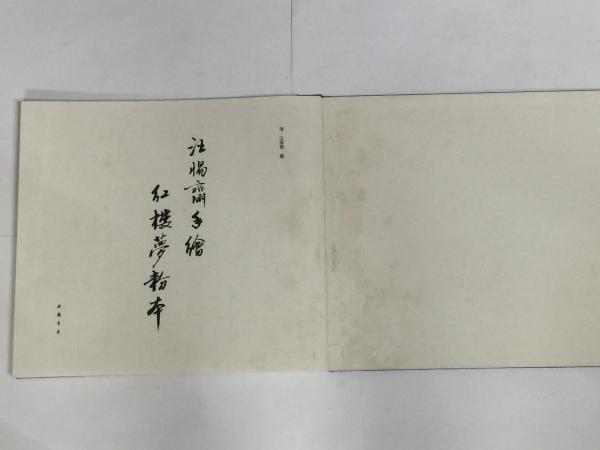 清·汪惕斋 绘
汪惕齋手繪
紅樓夢粉本
中國書店